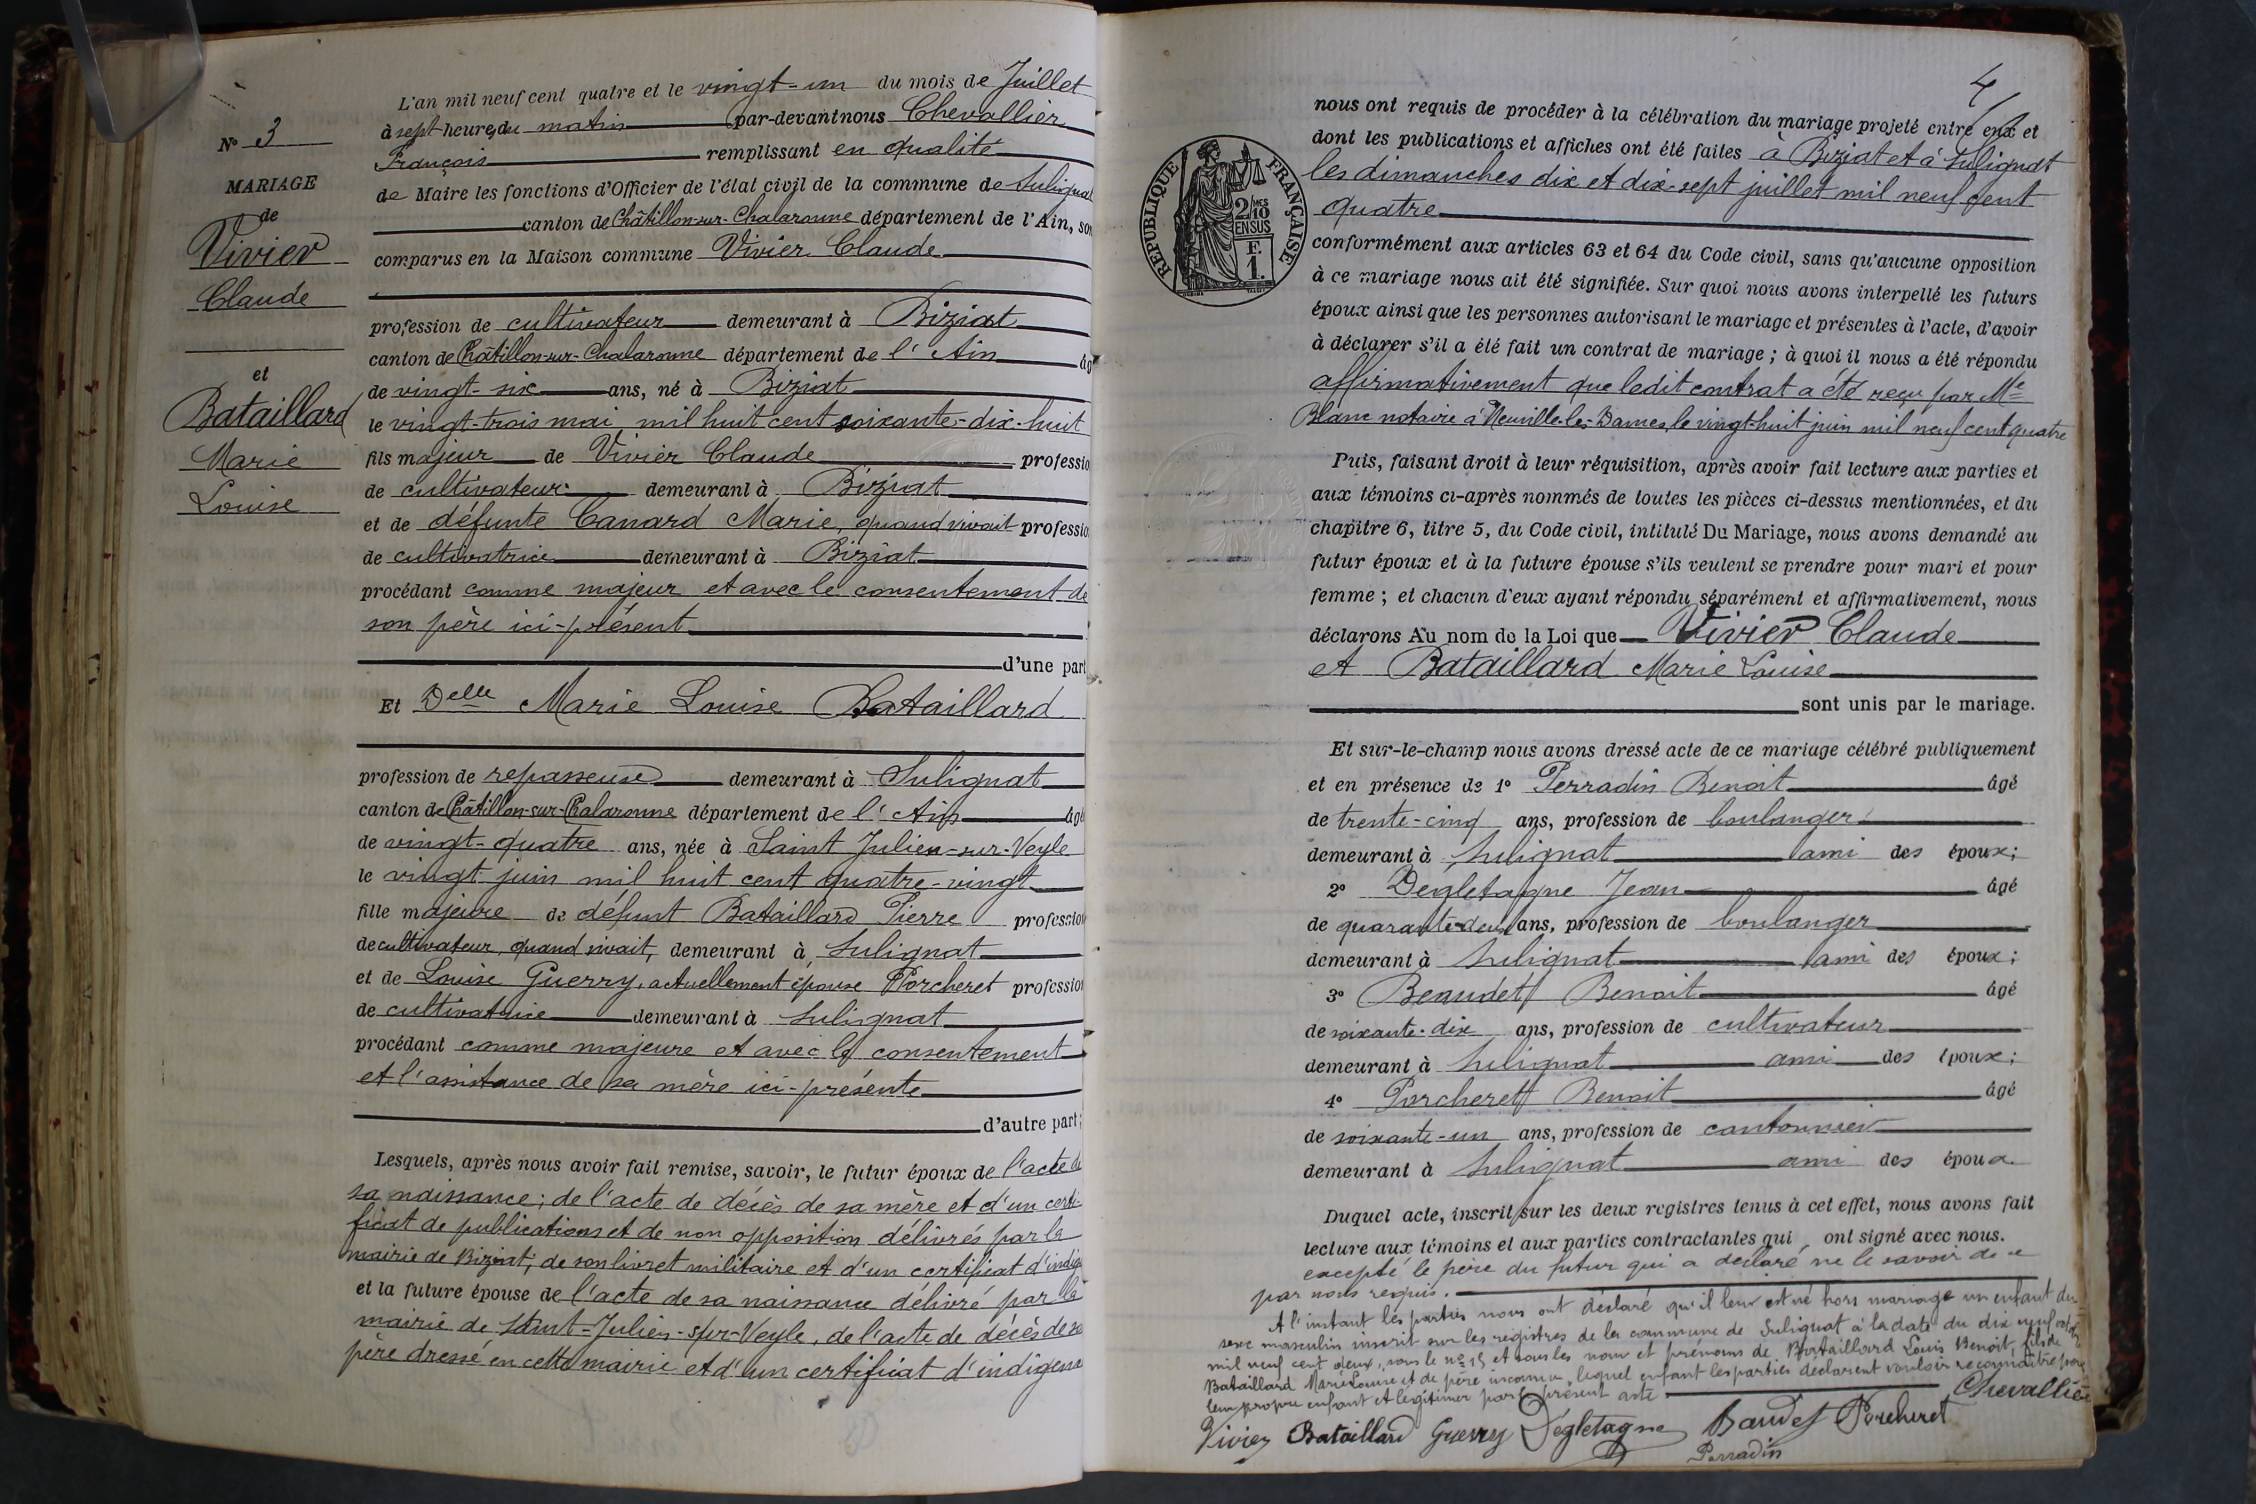 N° 3
MARIAGE
de
Vivier
Claude
et
Bataillard
Marie
Louise
L'an mil neuf cent quatre et le vingt-un du mois de Juillet
à sept heures du matin par-devant nous Chevallier
François remplissant en qualité
de Maire les fonctions d'Officier de l'état civil de la commune de Sulignat
canton de Châtillon-sur-Chalaronne département de l'Ain, son
comparus en la Maison commune Vivier Claude
profession de cultivateur demeurant à Biziat
canton de Châtillon-sur-Chalaronne département de l'Ain âg
de vingt-six ans, né à Biziat
le vingt-trois mai mil huit cent soixante-dix-huit
fils majeur de Vivier Claude professio
de cultivateur demeurant à Biziat
et de défunte Canard Marie, quand vivait professio
de cultivatrice demeurant à Biziat
procédant comme majeur et avec le consentement de
son père ici-présent
d'une part
Et Delle Marie Louise Bataillard
profession de repasseuse demeurant à Sulignat
canton de Châtillon-sur-Chalaronne département de l'Ain âgé
de vingt-quatre ans, née à Saint Julien-sur-Veyle
le vingt juin mil huit cent quatre-vingt
fille majeure de défunt Bataillard Pierre profession
de cultivateur, quand vivait, demeurant à Sulignat
et de Louise Guerry, actuellement épouse Porcheret profession
de cultivatrice demeurant à Sulignat
procédant comme majeure et avec le consentement
et l'assistance de sa mère ici-présente
d'autre part;
Lesquels, après nous avoir fait remise, savoir, le futur époux de l'acte de
sa naissance; de l'acte de décès de sa mère et d'un certi-
ficat de publications et de non opposition délivrés par la
mairie de Biziat; de son livret militaire et d'un certificat d'indig
et la future épouse de l'acte de sa naissance délivré par la
mairie de Saint-Julien-sur-Veyle, de l'acte de décès de son
père dressé en cette mairie et d'un certificat d'indigence
4
RÉPUBLIQUE FRANÇAISE
2/10MES
EN SUS
F.
1.
nous ont requis de procéder à la célébration du mariage projeté entre eux et
dont les publications et affiches ont été faites à Biziat et à Sulignat
les dimanches dix et dix-sept juillet mil neuf cent
quatre
conformément aux articles 63 et 64 du Code civil, sans qu'aucune opposition
à ce mariage nous ait été signifiée. Sur quoi nous avons interpellé les futurs
époux ainsi que les personnes autorisant le mariage et présentes à l'acte, d'avoir
à déclarer s'il a été fait un contrat de mariage; à quoi il nous a été répondu
affirmativement que ledit contrat a été reçu par Me
Blanc notaire à Neuville-les-Dames, le vingt-huit juin mil neuf cent quatre
Puis, faisant droit à leur réquisition, après avoir fait lecture aux parties et
aux témoins ci-après nommés de toutes les pièces ci-dessus mentionnées, et du
chapitre 6, titre 5, du Code civil, intitulé Du Mariage, nous avons demandé au
futur époux et à la future épouse s'ils veulent se prendre pour mari et pour
femme; et chacun d'eux ayant répondu séparément et affirmativement, nous
déclarons Au nom de la Loi que Vivier Claude
et Bataillard Marie Louise
sont unis par le mariage.
Et sur-le-champ nous avons dressé acte de ce mariage célébré publiquement
et en présence de 1° Perradin Benoit âgé
de trente-cinq ans, profession de boulanger
demeurant à Sulignat ami des époux;
2° Dégletagne Jean âgé
de quarante-deux ans, profession de boulanger
demeurant à Sulignat ami des époux;
3° Beaudet Benoit âgé
de soixante-dix ans, profession de cultivateur
demeurant à Sulignat ami des époux;
4° Porcheret Benoit âgé
de soixante-un ans, profession de cantonnier
demeurant à Sulignat ami des époux
Duquel acte, inscrit sur les deux registres tenus à cet effet, nous avons fait
lecture aux témoins et aux parties contractantes qui ont signé avec nous.
excepté le père du futur qui a déclaré ne le savoir de ce
par nous requis.
A l'instant les parties nous ont déclaré qu'il leur est né hors mariage un enfant du
sexe masculin inscrit sur les registres de la commune de Sulignat à la date du dix neuf
mil neuf cent deux, sous le n° 15 et sous les nom et prénoms de Bataillard Louis Benoit, fils de
Bataillard Marie Louise et de père inconnu, lequel enfant les parties déclarent vouloir reconnaître pour
leur propre enfant et légitimer par le présent acte
Chevallier
Vivier Bataillard Guerry Dégletagne Baudet Porcheret
Perradin